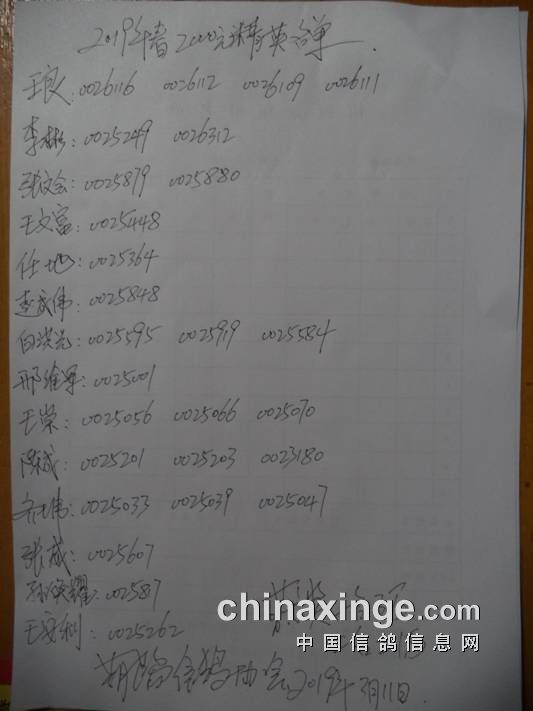 2019年春2000元精英名单.
王良: 0026116 0026112 0026109 0026111
李彬: 0025249 0026312
张文会: 0025879 0025880
王文富: 0025448
任地: 0025364
李成伟: 0025848
白洪光: 0025595 0025919 0025584
邢维军: 0025001
王荣: 0025056 0025066 0025070
陈斌: 0025201 0025203 0023180
齐大伟: 0025033 0025039 0025047
张成: 0025607
孙焕耀: 002587
王安利: 0025262
chinaxinge.com
中国信鸽信息网
信鸽协会2019年3月11日.